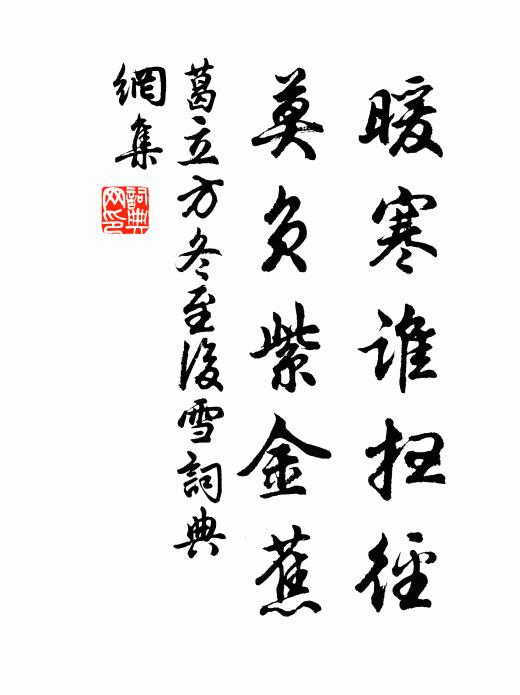 暖寒谁扫径
莫负紫金蕉
葛立方冬至後雪詞典
網集
詞典
网印